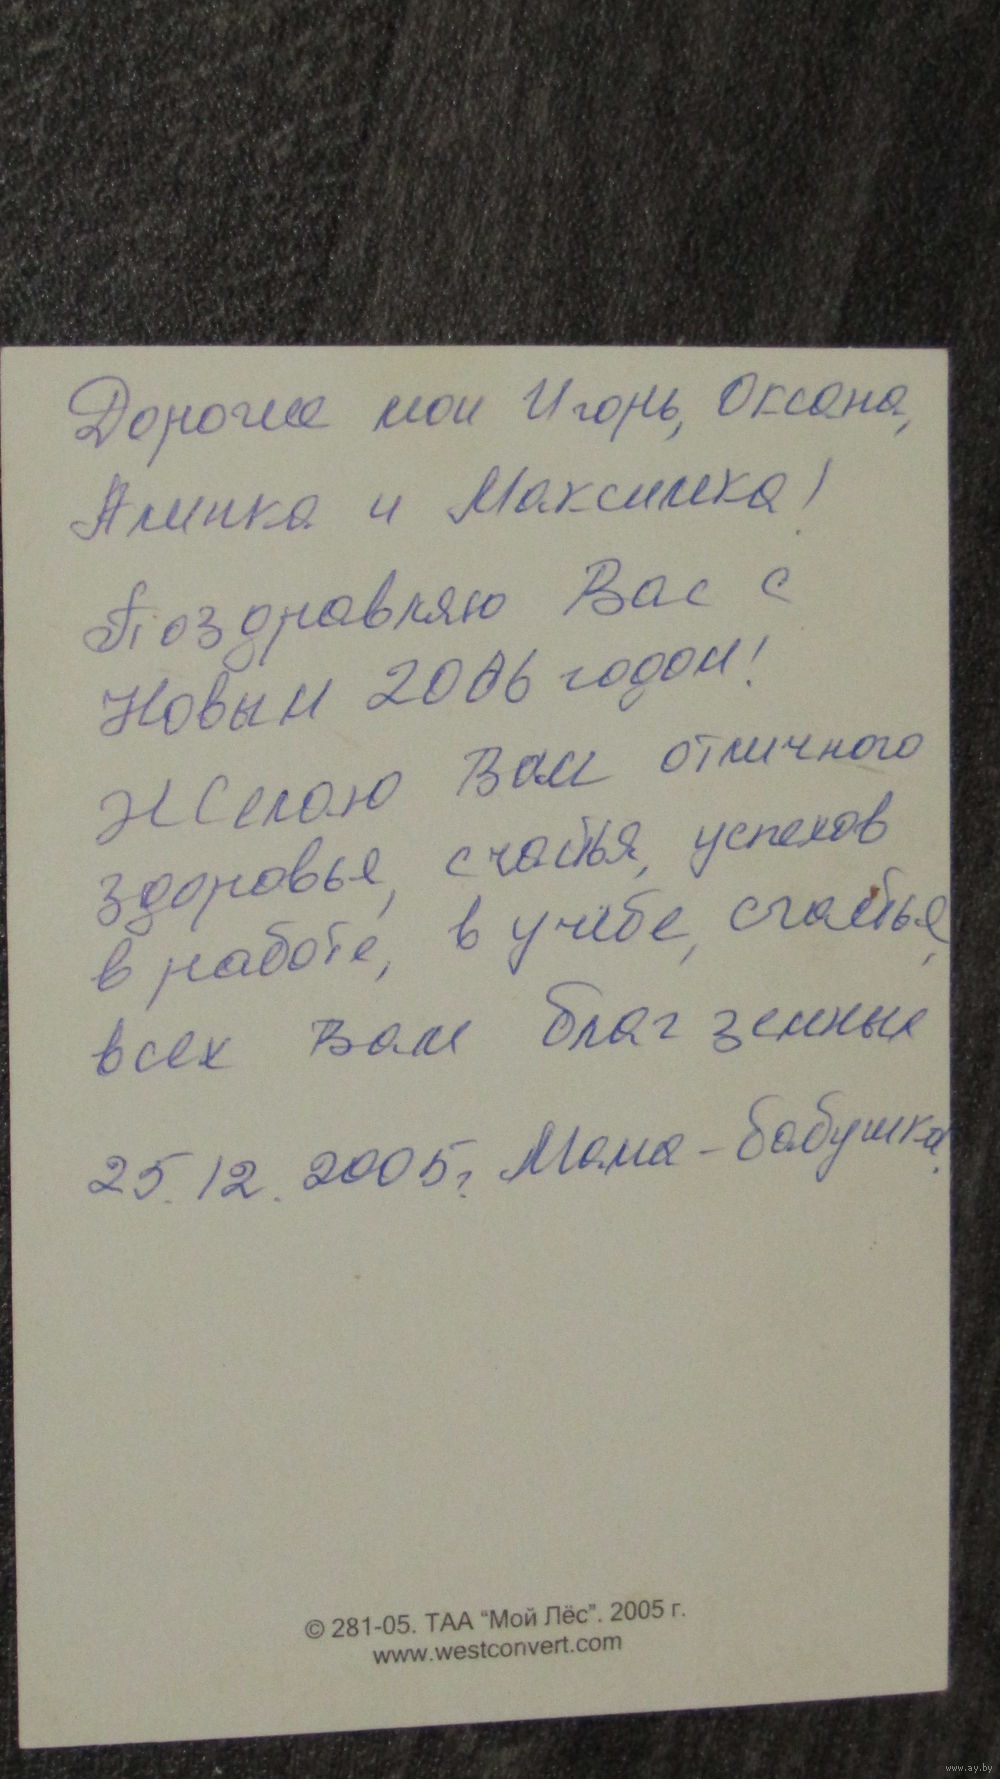 Дорогие мои Игорь, Оксана,
Алинка и Максимка!
Поздравляю Вас с
Новым 2006 годом!
Желаю Вам отличного
здоровья, счастья, успехов
в работе, в учёбе, счастья,
всех Вам благ земных
25.12.2005г. Мама-бабушка.
© 281-05. ТАА “Мой Лёс”. 2005 г.
www.westconvert.com
www.ay.by